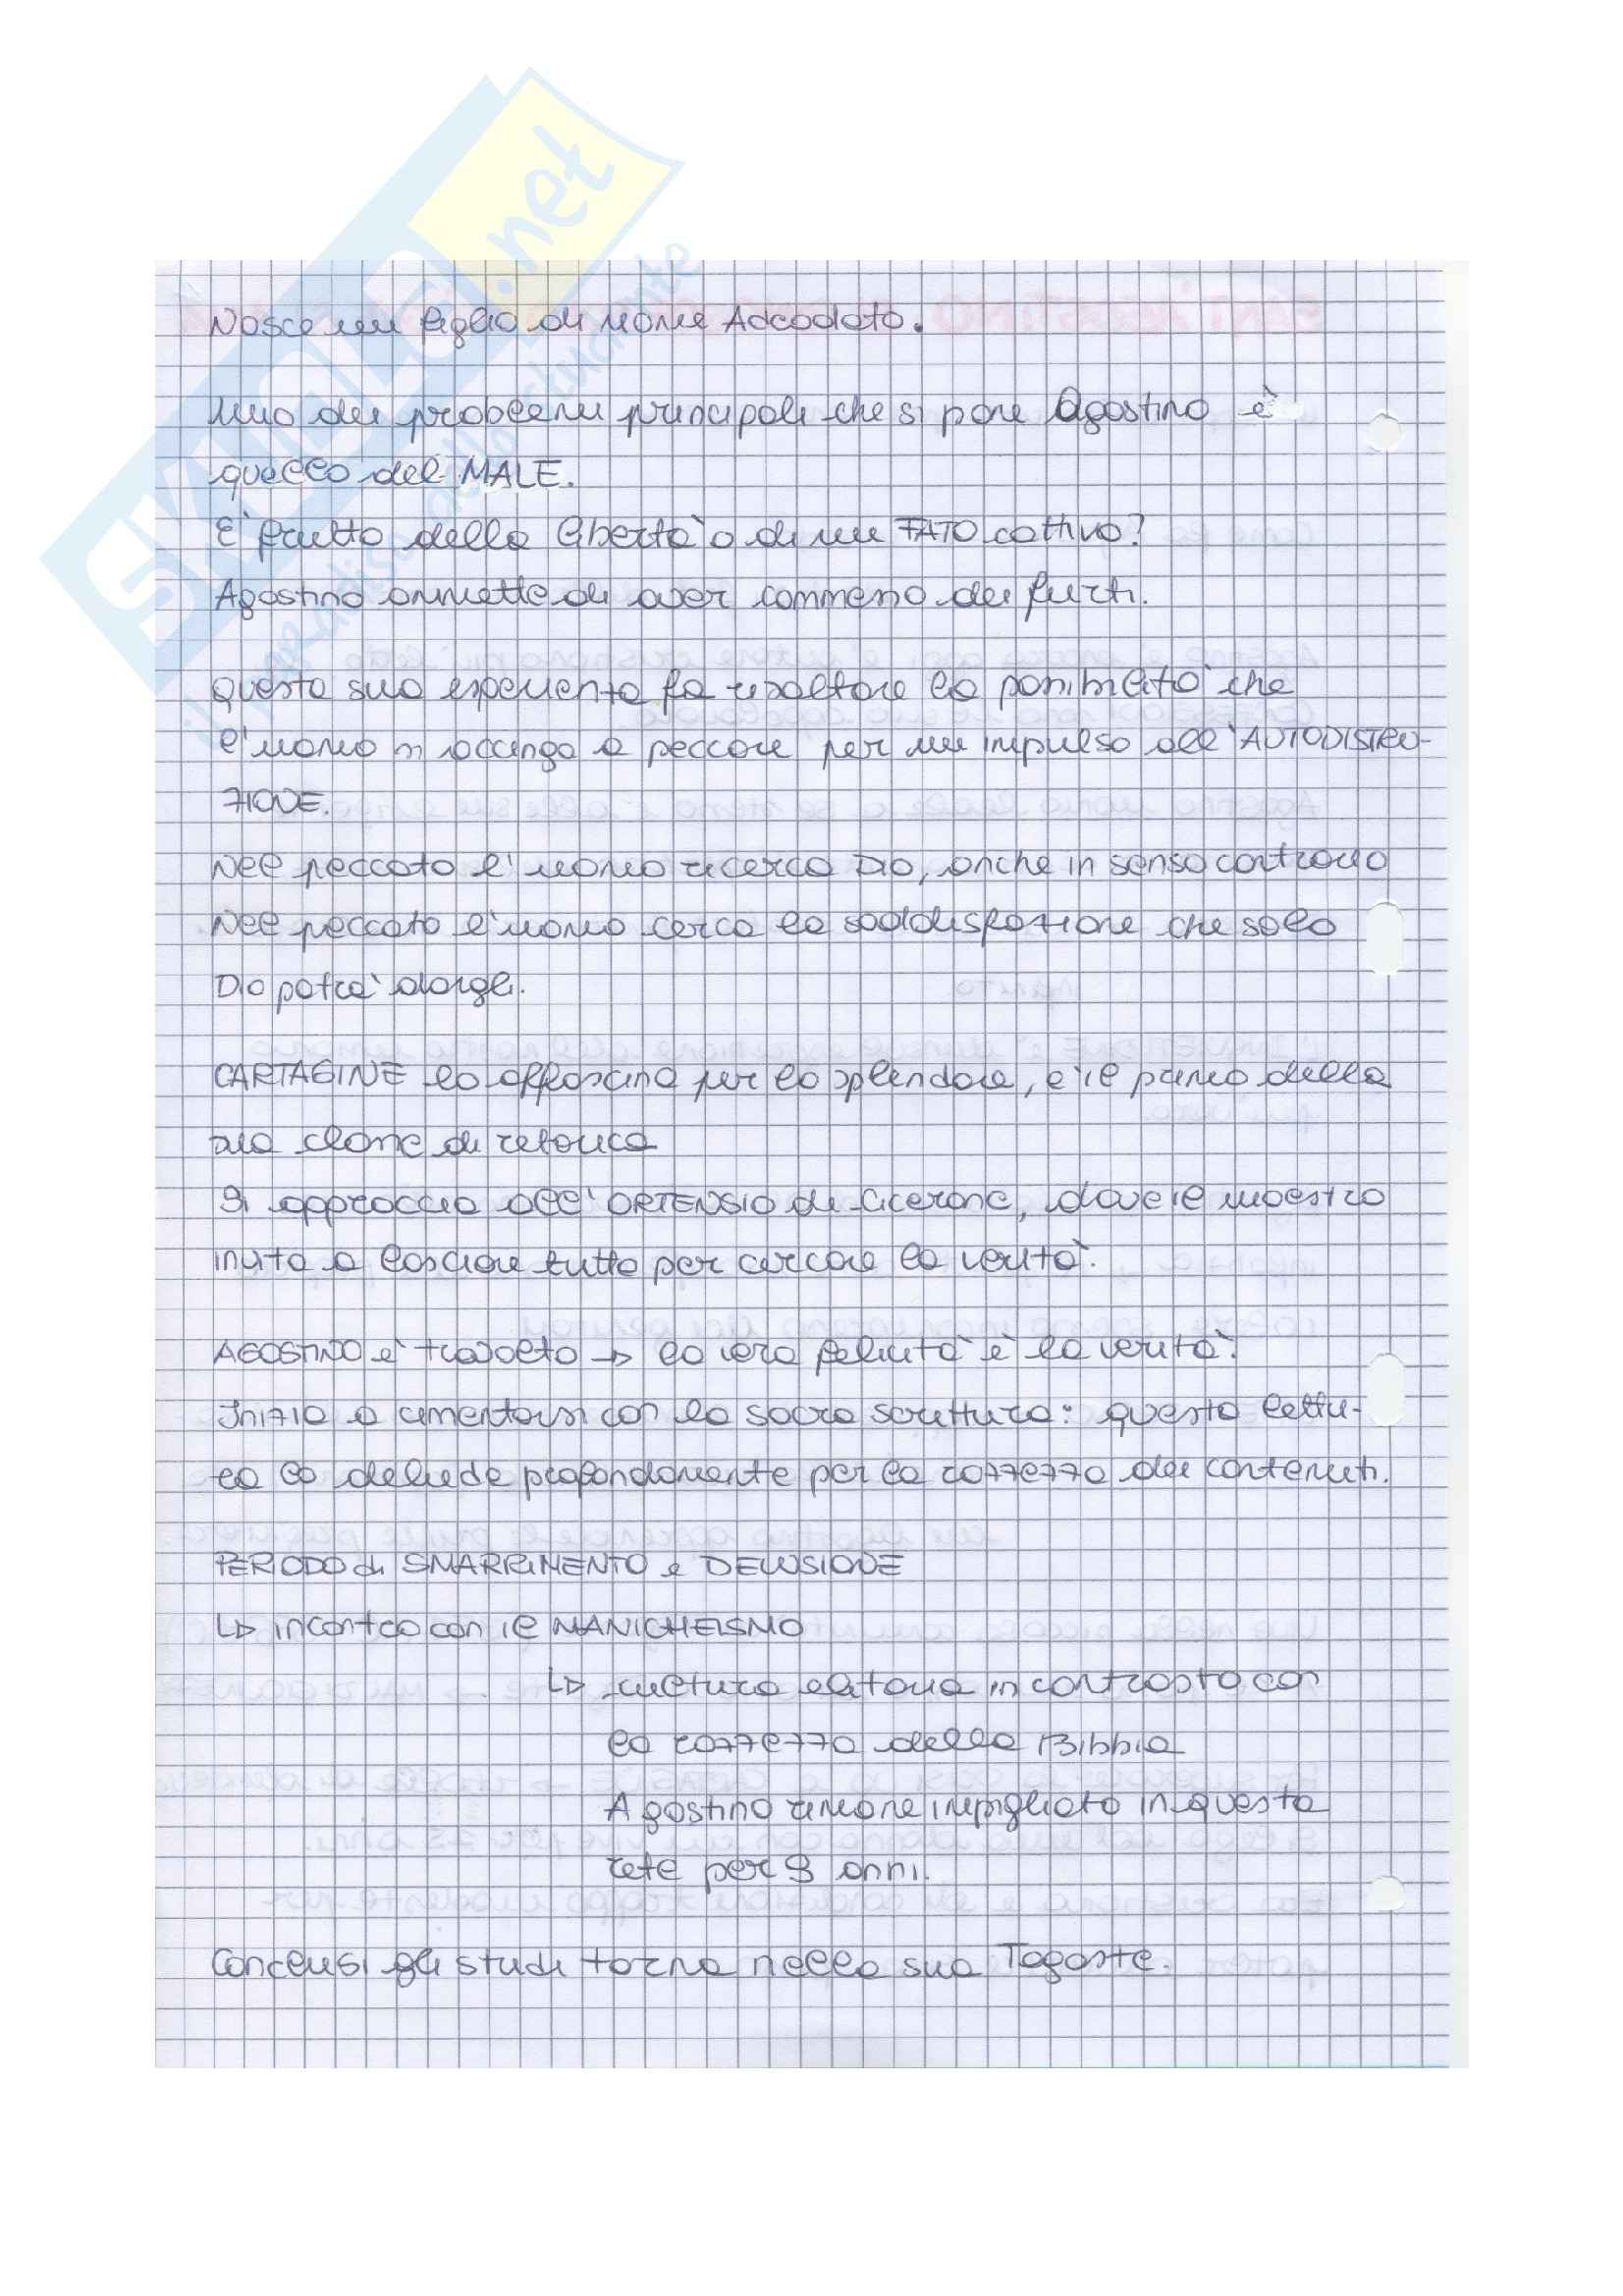 SKUOLA.net
il paradiso dello studente
Nasce un figlio di nome Adeodato.
Uno dei problemi principali che si pone Agostino è
quello del MALE.
E' frutto della libertà o di un FATO cattivo?
Agostino ammette di aver commesso dei furti.
Questa sua esperienza fa risaltare la possibilità che
l'uomo si accinga a peccare per un impulso all'AUTODISTRU-
ZIONE.
Nel peccato l'uomo ricerca Dio, anche in senso contrario
Nel peccato l'uomo cerca la soddisfazione che solo
Dio potrà dargli.
CARTAGINE lo affascina per lo splendore, è il primo della
sua classe di retorica
Si approccia all'ORTENSIO di Cicerone, dove il maestro
invita a lasciare tutto per cercare la verità.
AGOSTINO è travolto → la vera felicità è la verità.
Inizia a cimentarsi con la sacra scrittura: questa lettu-
ra lo delude profondamente per la rozzezza dei contenuti.
PERIODO di SMARRIMENTO e DELUSIONE
↳ incontro con il MANICHEISMO
↳ cultura elitaria in contrasto con
la rozzezza della Bibbia
Agostino rimane impigliato in questa
rete per 9 anni.
Conclusi gli studi torna nella sua Tagaste.